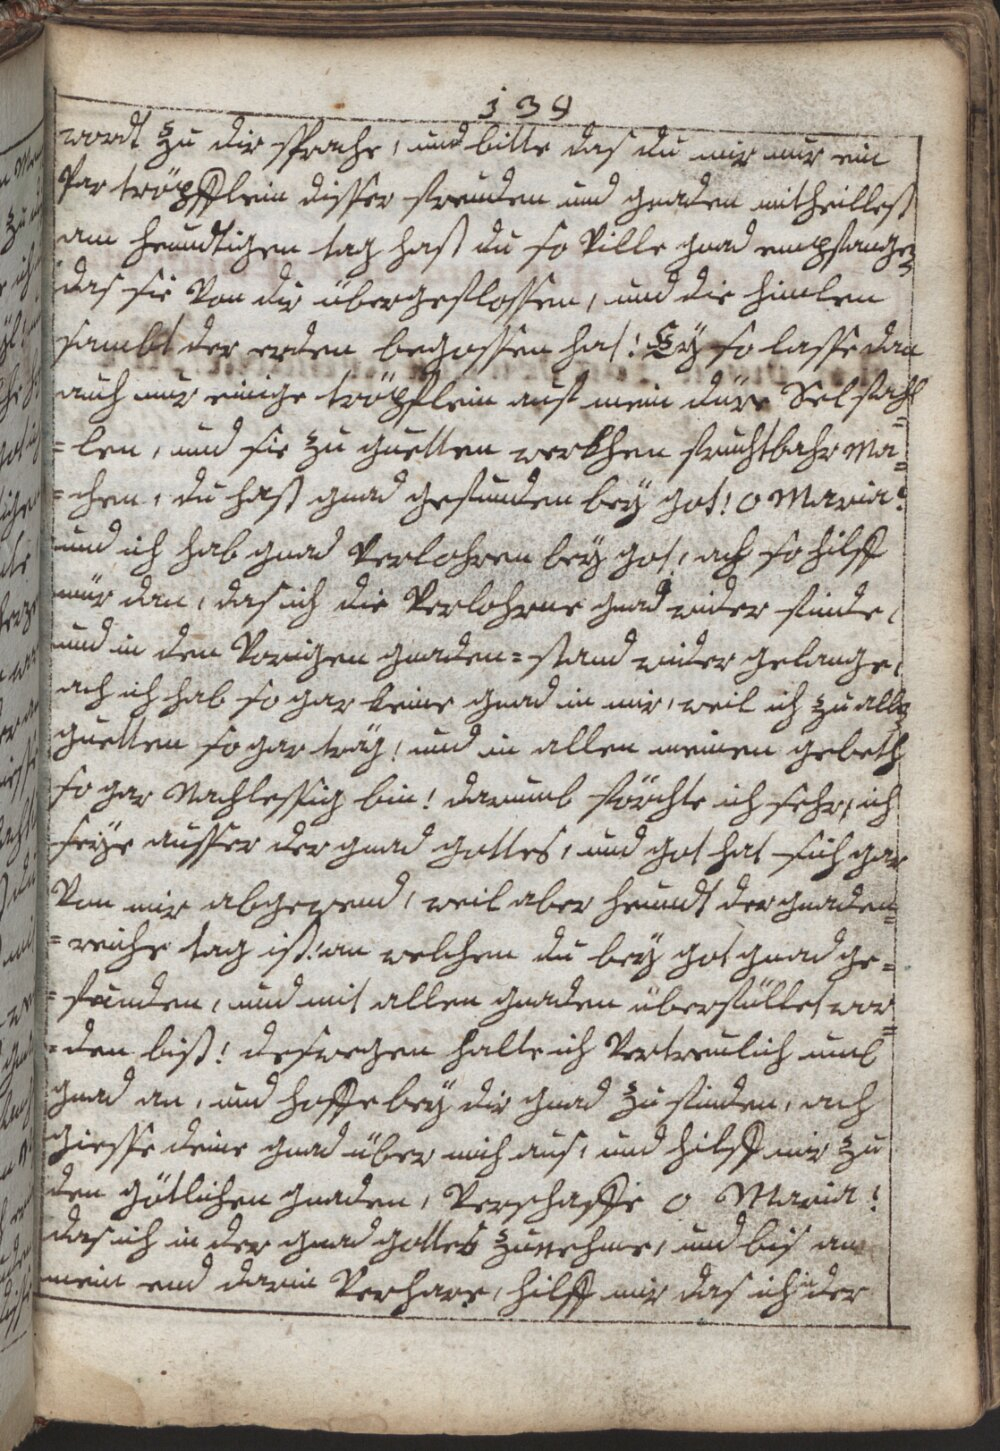 139
wordt zu dir sprache, und bitte das du mir nur ein
Par tröpfflein disser freuden und gnaden mitheillest
am heundtigen tag hast du so Ville gnad empfangen
das sie Von dir übergeflossen, und die himlen
sambt der erden begossen hat! Ey so lasse dan
auch nur einige tröpflein auf mein düre Sel fahl
=len, und sie zu guetten werkhen fruchtbahr Ma=
=chen, du hast gnad gefunden bey got! O Maria!
und ich hab gnad Verlohren bey got, ach so hilff
mür dan, das ich die Verlohrne gnad wider finde,
und in den Vorigen gnaden=stand wider gelange,
ach ich hab so gar keine gnad in mir, weil ich zu alle
guetten so gar träg! und in allen meinen gebeth
so gar Nachlessig bin! darumb förchte ich sehr, ich
seÿe ausser der gnad gottes, und got hat sich gar
Von mir abgewend, weil aber heundt der gnaden=
=reiche tag ist, an welchen du bey got gnad ge=
=funden, und mit allen gnaden überfüllet wor=
=den bist! deswegen halte ich Vertreulich umb
gnad an, und hoffe bey dir gnad zu finden, ach
giesse deine gnad über mich aus, und hilff mir zu
den götlichen gnaden, Verschaffe O Maria!
das ich in der gnad gottes zunehme, und bis an
mein end darin Verhare, hilff mir das ich in der